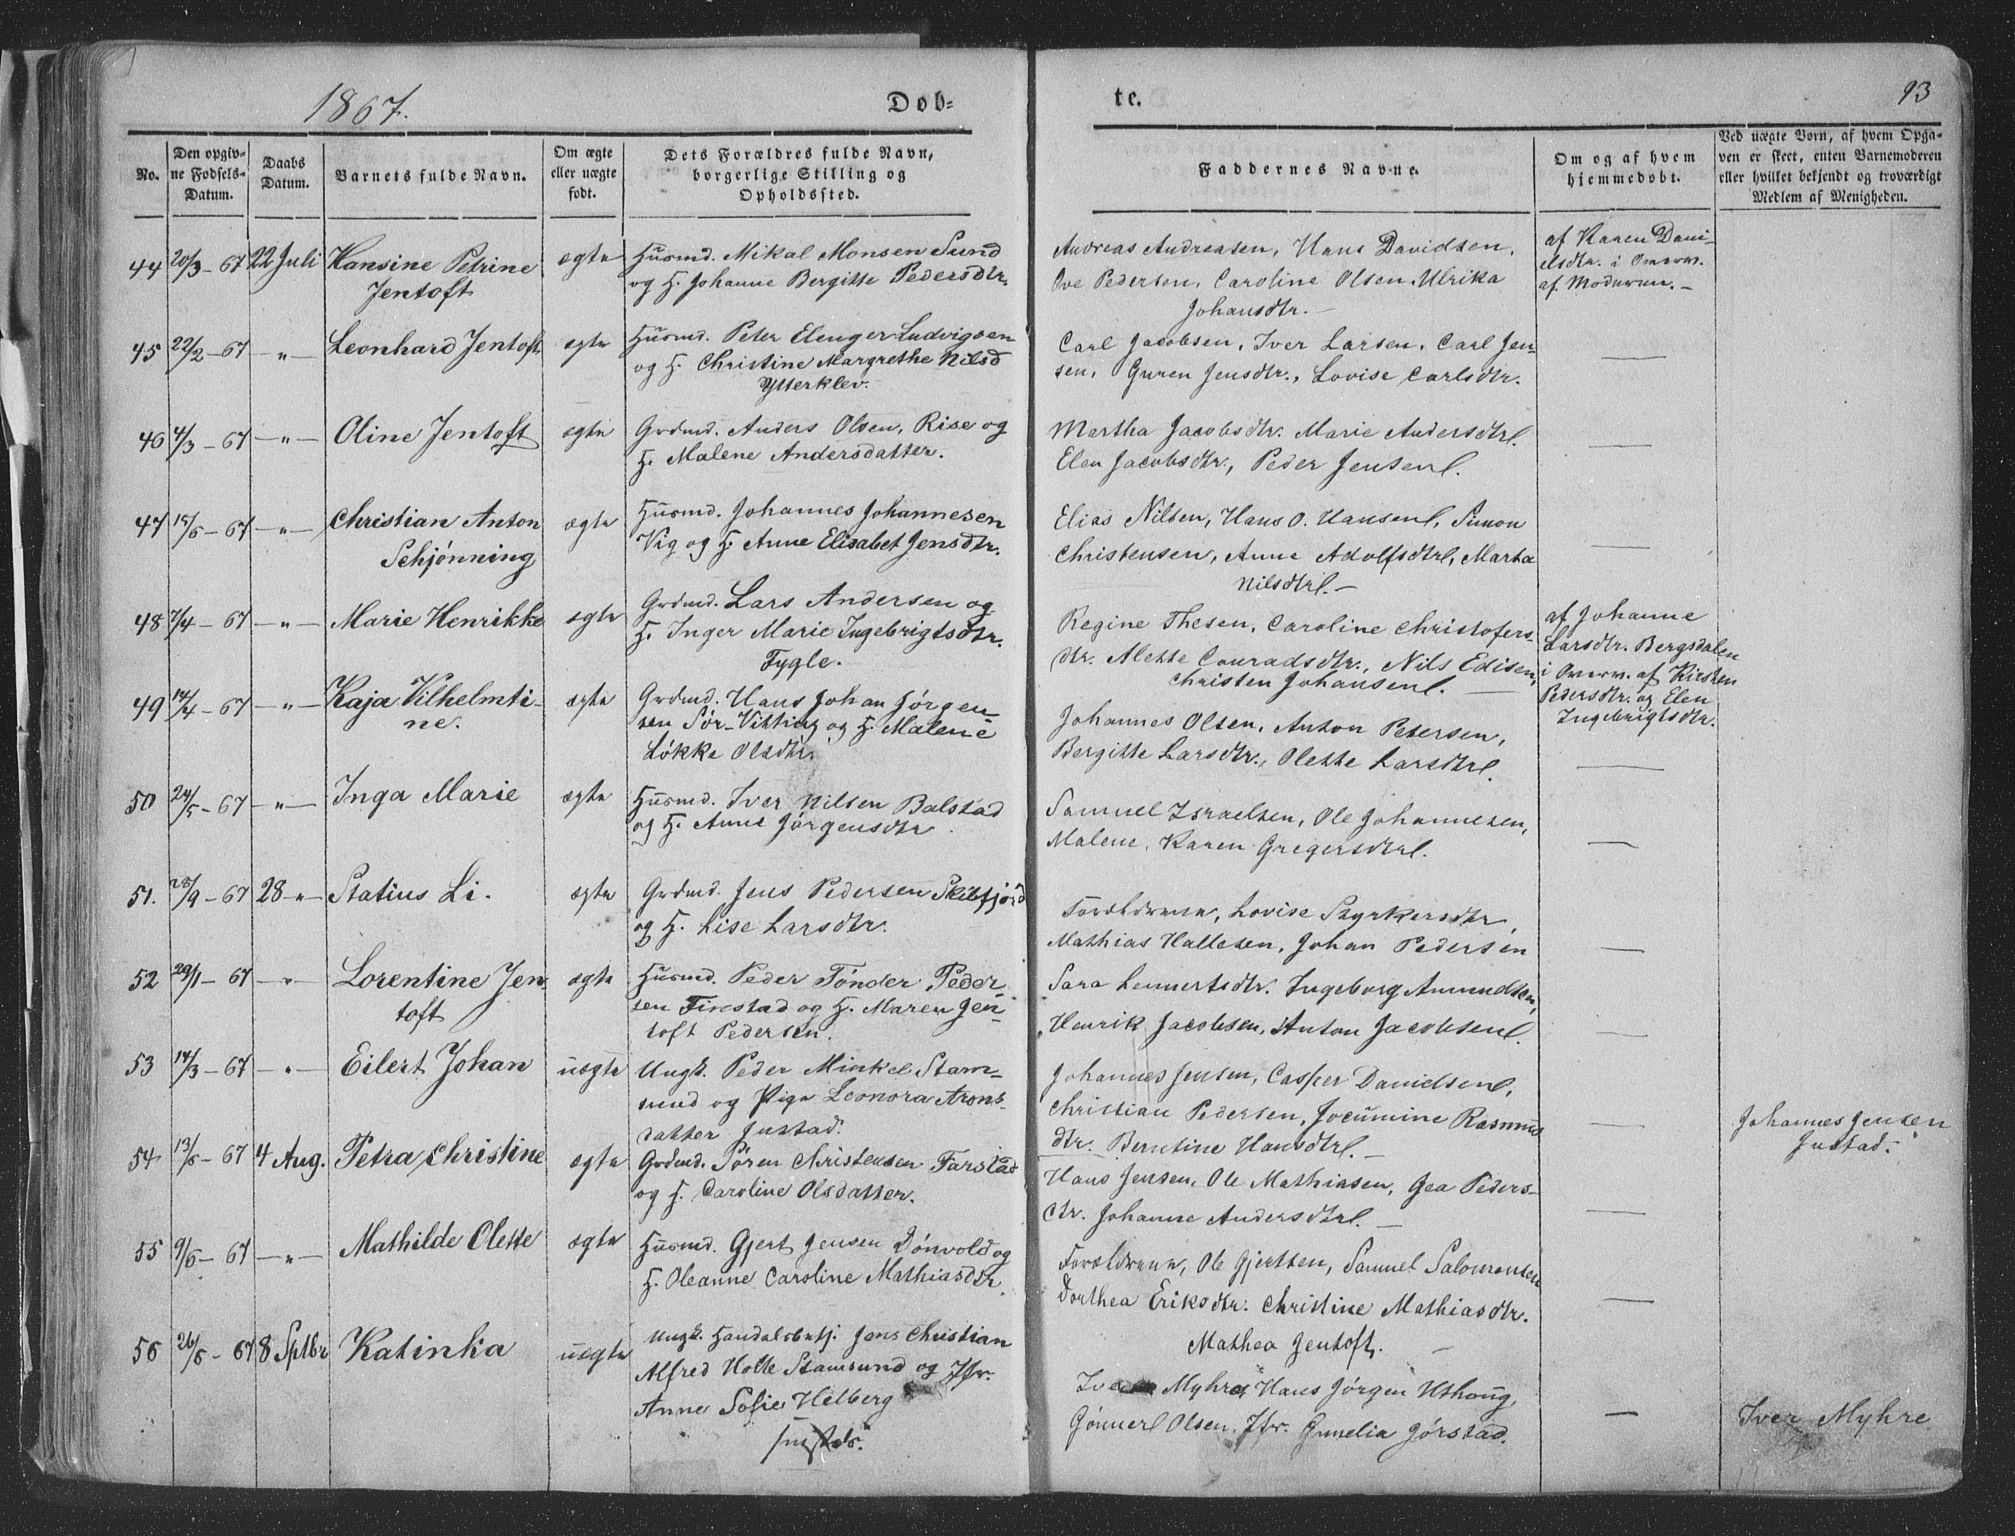 1867.
Døb-
te.
93
No.
Den opgiv-
ne Fødsels-
Datum.
Daabs
Datum.
Barnets fulde Navn.
Om ægte
eller uægte
født.
Dets Forældres fulde Navn,
borgerlige Stilling og
Opholdssted.
Faddernes Navne.
Om og af hvem
hjemmedøbt.
Ved uægte Børn, af hvem Opga-
ven er skeet, enten Barnemoderen
eller hvilket bekjendt og troværdigt
Medlem af Menigheden.
44 20/3 - 67 22 Juli Hansine Petrine
Jentoft
ægte
Husmd. Mikal Monsen Sund
og H. Johanne Bergitte Pedersdtr.
Andreas Andreasen, Hans Davidsen,
Ove Pedersen, Caroline Olsen, Ulrika
Johansdtr. -
af Karen Dani-
elsdtr. i Overv.
af Moderen. -
45 22/2 - 67 - " - Leonhard Jentoft
ægte
Husmd. Peter Elenger Ludvigsen
og H. Christine Margrethe Nilsd
Ytterklev.
Carl Jacobsen, Iver Larsen, Carl Jen-
sen, Guren Jensdtr., Lovise Carlsdtr.
46 4/3 - 67 - " - Oline Jentoft
ægte
Grdmd. Anders Olsen, Rise og
H. Malene Andersdatter.
Martha Jacobsdtr. Marie Andersdtrl.
Elen Jacobsdtr., Peder Jensenl.
47 15/5 - 67 - " - Christian Anton
Schjønning
ægte
Husmd. Johannes Johannesen
Vig og H. Anne Elisabet Jensdtr.
Elias Nilsen, Hans O. Hansenl, Simon
Christensen, Anne Adolfsdtrl, Marta
Nilsdtrl. -
48 7/4 - 67 - " - Marie Henrikke
ægte
Grdmd. Lars Andersen og
H. Inger Marie Ingebrigtsdtr.
Fygle.
Regine Thesen, Caroline Christofers-
dtr. Alette Conradsdtr., Nils Edisen,
Christen Johansenl.
af Johanne
Larsdtr. Bergsdalen
i Overv. af Kirsten
Pedersdtr. og Elen
Ingebrigtsdtr.
49 14/4 - 67 - " - Kaja Vilhelmti-
ne.
ægte
Grdmd. Hans Johan Jørgen-
sen Sør-Vitting og H. Malene
Løkke Olsdtr.
Johannes Olsen, Anton Petersen,
Bergitte Larsdtr., Olette Larsdtrl.
50 24/5 - 67 - " - Inga Marie
ægte
Husmd. Iver Nilsen Balstad
og H. Anne Jørgensdtr.
Samuel Israelsen, Ole Johannesen,
Malene, Karen Gregersdtrl.
51. 28/9 - 67 28 - " - Statius Li.
ægte
Grdmd. Jens Pedersen Skibfjord
og H. Lise Larsdtr.
Forældrene, Lovise Styrkersdtr,
Mathias Hallesen, Johan Pedersen
52 29/1 - 67 " Lorentine Jen-
toft
ægte
Husmd. Peder Tønder Peder-
sen Finstad og H. Maren Jen-
toft Pedersen.
Sara Lennertsdtr. Ingeborg Amundsen,
Henrik Jacobsen, Anton Jacobsenl.
53 14/3 - 67 - " - Eilert Johan
uægte
Ungk. Peder Minkel Stam-
sund og Pige Leonora Arons-
datter Justad.
Johannes Jensen, Casper Danielsenl,
Christian Pedersen, Jocumine Rasmus
dtr. Berntine Hansdtrl. -
Johannes Jensen
Justad.
54 13/6 - 67 4 Aug. Petra Christine
ægte
Grdmd. Søren Christensen Farstad
og H. Caroline Olsdatter.
Hans Jensen, Ole Mathiasen, Gea Peders-
dtr. Johanne Andersdtrl. -
55 9/6 - 67 - " - Mathilde Olette
ægte
Husmd. Gjert Jensen Dønvold og
H. Oleanne Caroline Mathiasdtr.
Forældrene, Ole Gjertsen, Samuel Salomonsen
Dorthea Eriksdtr. Christine Mathiasdtr.
Mathea Jentoft. -
56 26/6 - 67 8 Sptbr Katinka
uægte
Ungk. Handelsbetj. Jens Christian
Alfred Holte Stamsund og Jfr.
Anne Sofie Helberg
Iver Myhre Hans Jørgen Uthoug,
Gønnerl Olsen, Jfr. Gunelia Jørstad.
Iver Myhre